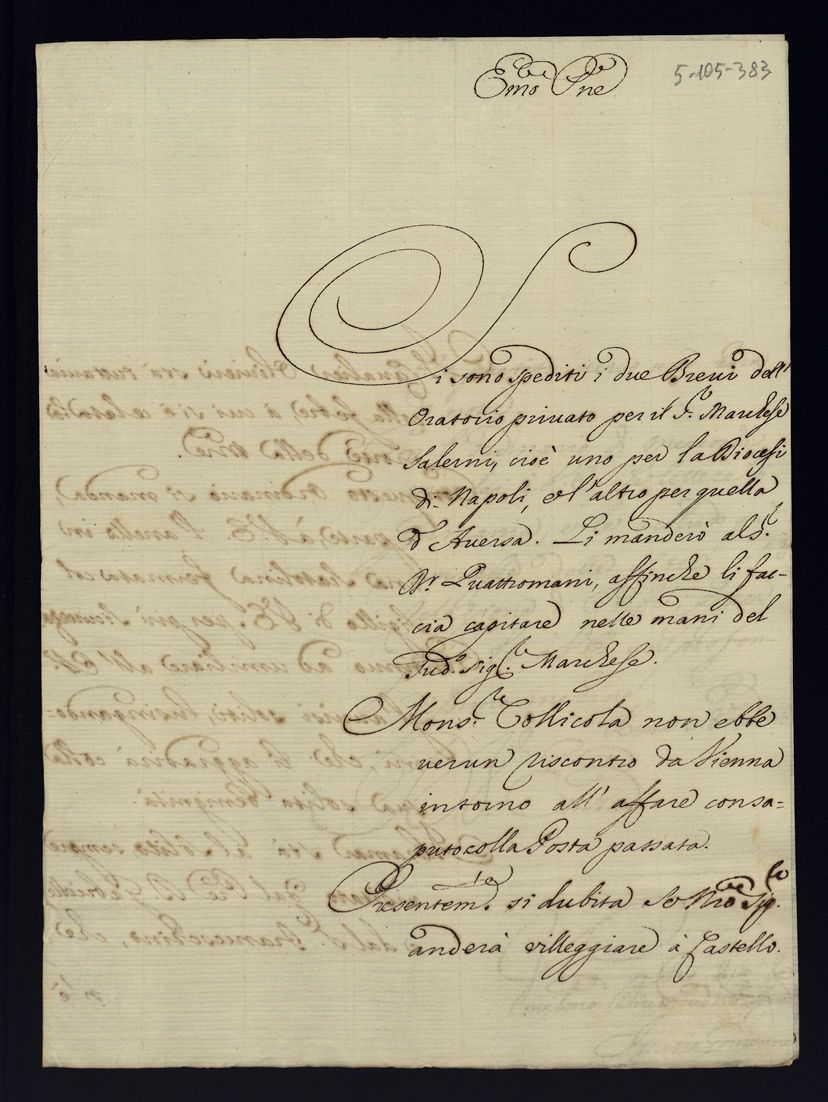 Emo Pne
5-105-383
Si sono spediti i due Brevi dell'
Oratorio privato per il S.r Marchese
Salerni, cioè uno per la Diocesi
di Napoli, e l'altro per quella
d'Aversa. Li manderò al S.r
D.r Quattromani, affinche li fac-
cia capitare nelle mani del
sud.o Sig.r Marchese.
Mons.re Collicola non ebbe
verun riscontro da Vienna
intorno all' affare consa=
puto colla Posta passata.
Presentem.te si dubita se Nro Sig.re
anderà villeggiare à Castello.